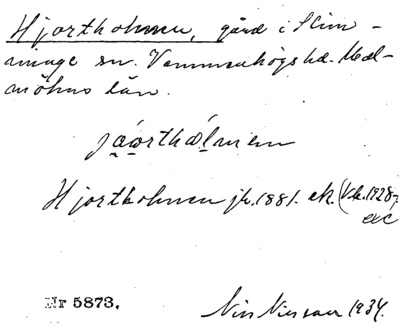 Hjortholmen, gård i Slim-
minge sn. Vemmenhögs hd. Mal-
möhus län.
jåorthålmen
Hjortholmen jk. 1881. ek. (Vk. 1928-
exc
Nr 5873,
Nils Nilsson 1934.